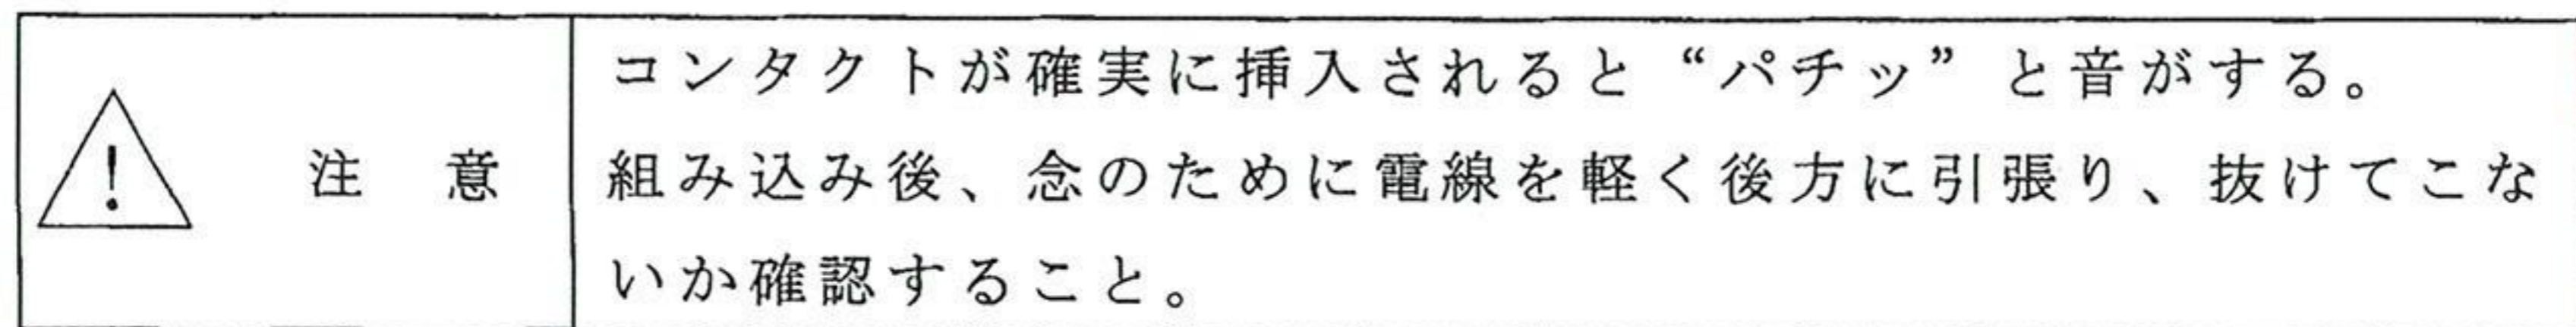 注 意
コンタクトが確実に挿入されると“パチッ”と音がする。
組み込み後、念のために電線を軽く後方に引張り、抜けてこな
いか確認すること。